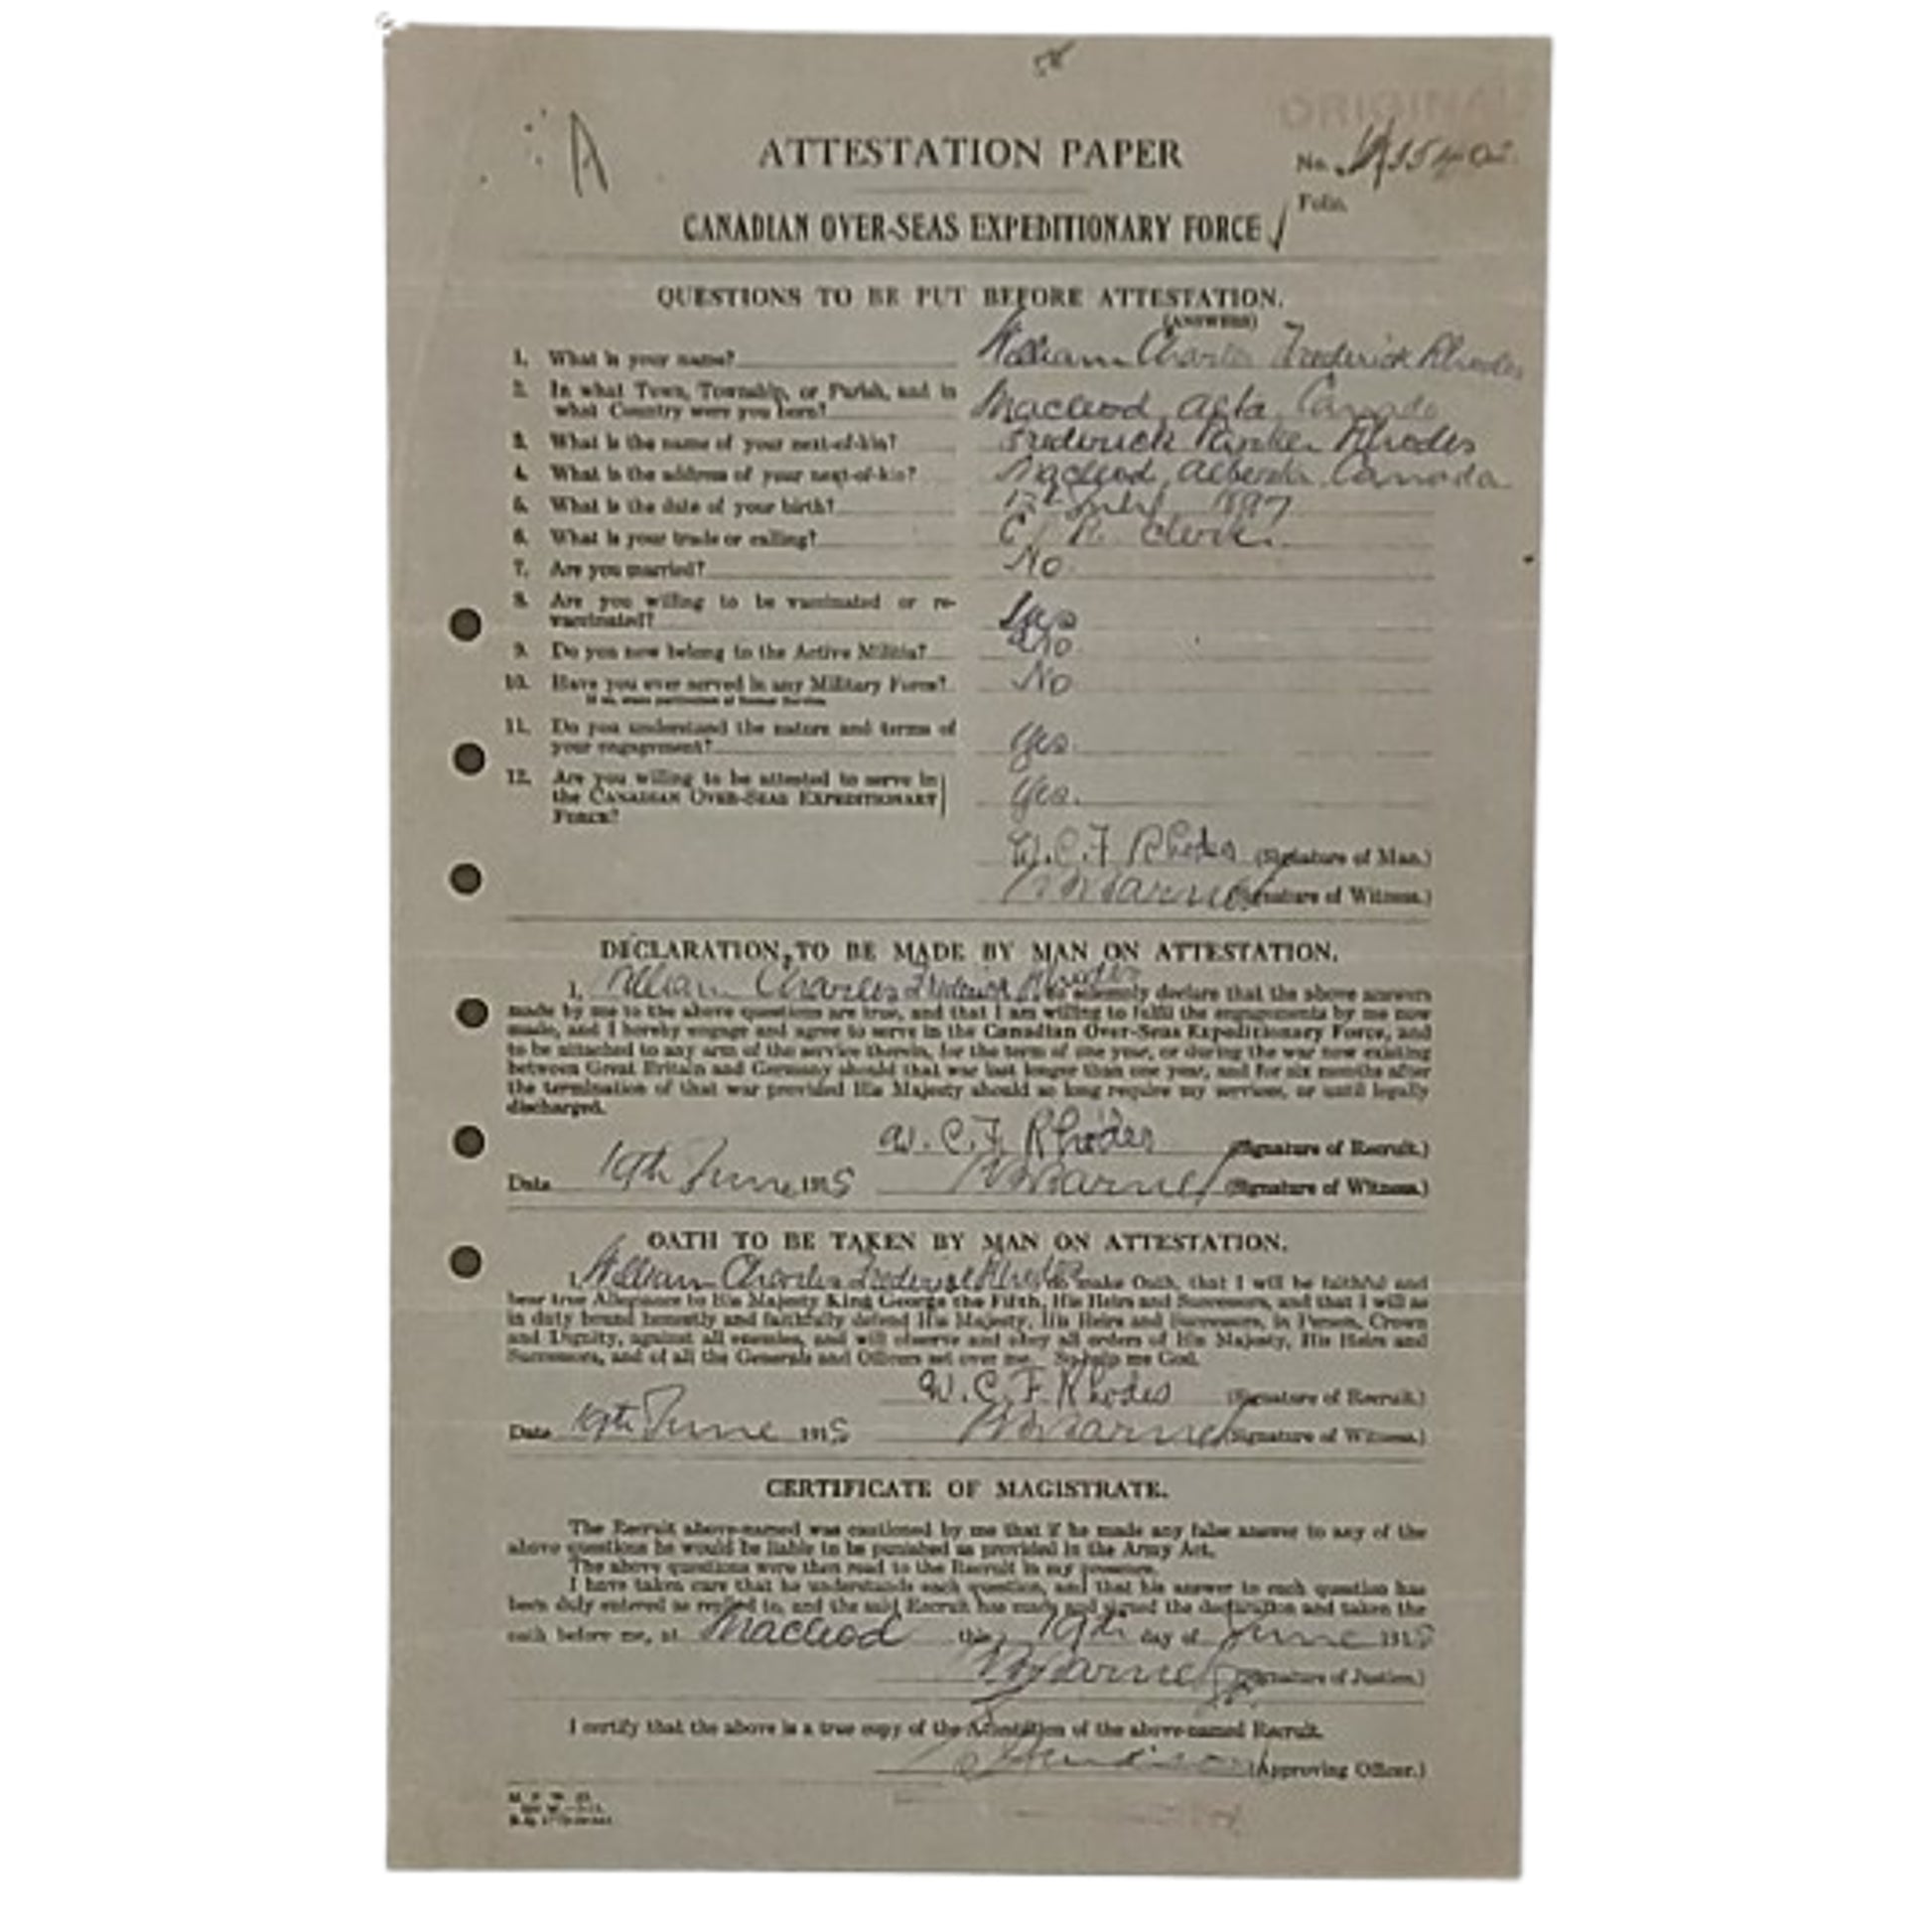 ATTESTATION PAPER
No.
Folio.
CANADIAN OVER-SEAS EXPEDITIONARY FORCE
QUESTIONS TO BE PUT BEFORE ATTESTATION.
(ANSWERS)
1. What is your name? William Charles Frederick Rhodes
2. In what Town, Township, or Parish, and in
what Country were you born? Macleod, Alta, Canada
3. What is the name of your next-of-kin? Frederick Rhodes
4. What is the address of your next-of-kin? Macleod, Alberta, Canada
5. What is the date of your birth? July 1897
6. What is your trade or calling? Clerk.
7. Are you married? No.
8. Are you willing to be vaccinated or re-
vaccinated? Yes
9. Do you now belong to the Active Militia? No.
10. Have you ever served in any Military Force? No
If so, state particulars of former Service.
11. Do you understand the nature and terms of
your engagement? Yes.
12. Are you willing to be attested to serve in
the CANADIAN OVER-SEAS EXPEDITIONARY Yes.
FORCE?
W.C.F Rhodes (Signature of Man.)
(Signature of Witness.)
DECLARATION TO BE MADE BY MAN ON ATTESTATION.
I, William Charles Frederick Rhodes, do solemnly declare that the above answers
made by me to the above questions are true, and that I am willing to fulfil the engagements by me now
made, and I hereby engage and agree to serve in the Canadian Over-Seas Expeditionary Force, and
to be attached to any arm of the service therein, for the term of one year, or during the war now existing
between Great Britain and Germany should that war last longer than one year, and for six months after
the termination of that war provided His Majesty should so long require my services, or until legally
discharged.
W.C.F. Rhodes (Signature of Recruit.)
Date 19th June 1915 (Signature of Witness.)
OATH TO BE TAKEN BY MAN ON ATTESTATION.
I, William Charles Frederick Rhodes, do make Oath, that I will be faithful and
bear true Allegiance to His Majesty King George the Fifth, His Heirs and Successors, and that I will as
in duty bound honestly and faithfully defend His Majesty, His Heirs and Successors, in Person, Crown
and Dignity, against all enemies, and will observe and obey all orders of His Majesty, His Heirs and
Successors, and of all the Generals and Officers set over me. So help me God.
W.C.F. Rhodes (Signature of Recruit.)
Date 19th June 1915 (Signature of Witness.)
CERTIFICATE OF MAGISTRATE.
The Recruit above-named was cautioned by me that if he made any false answer to any of the
above questions he would be liable to be punished as provided in the Army Act.
The above questions were then read to the Recruit in my presence.
I have taken care that he understands each question, and that his answer to each question has
been duly entered as replied to, and the said Recruit has made and signed the declaration and taken the
oath before me, at Macleod this 19th day of June 1915
(Signature of Justice.)
I certify that the above is a true copy of the Attestation of the above-named Recruit.
(Approving Officer.)